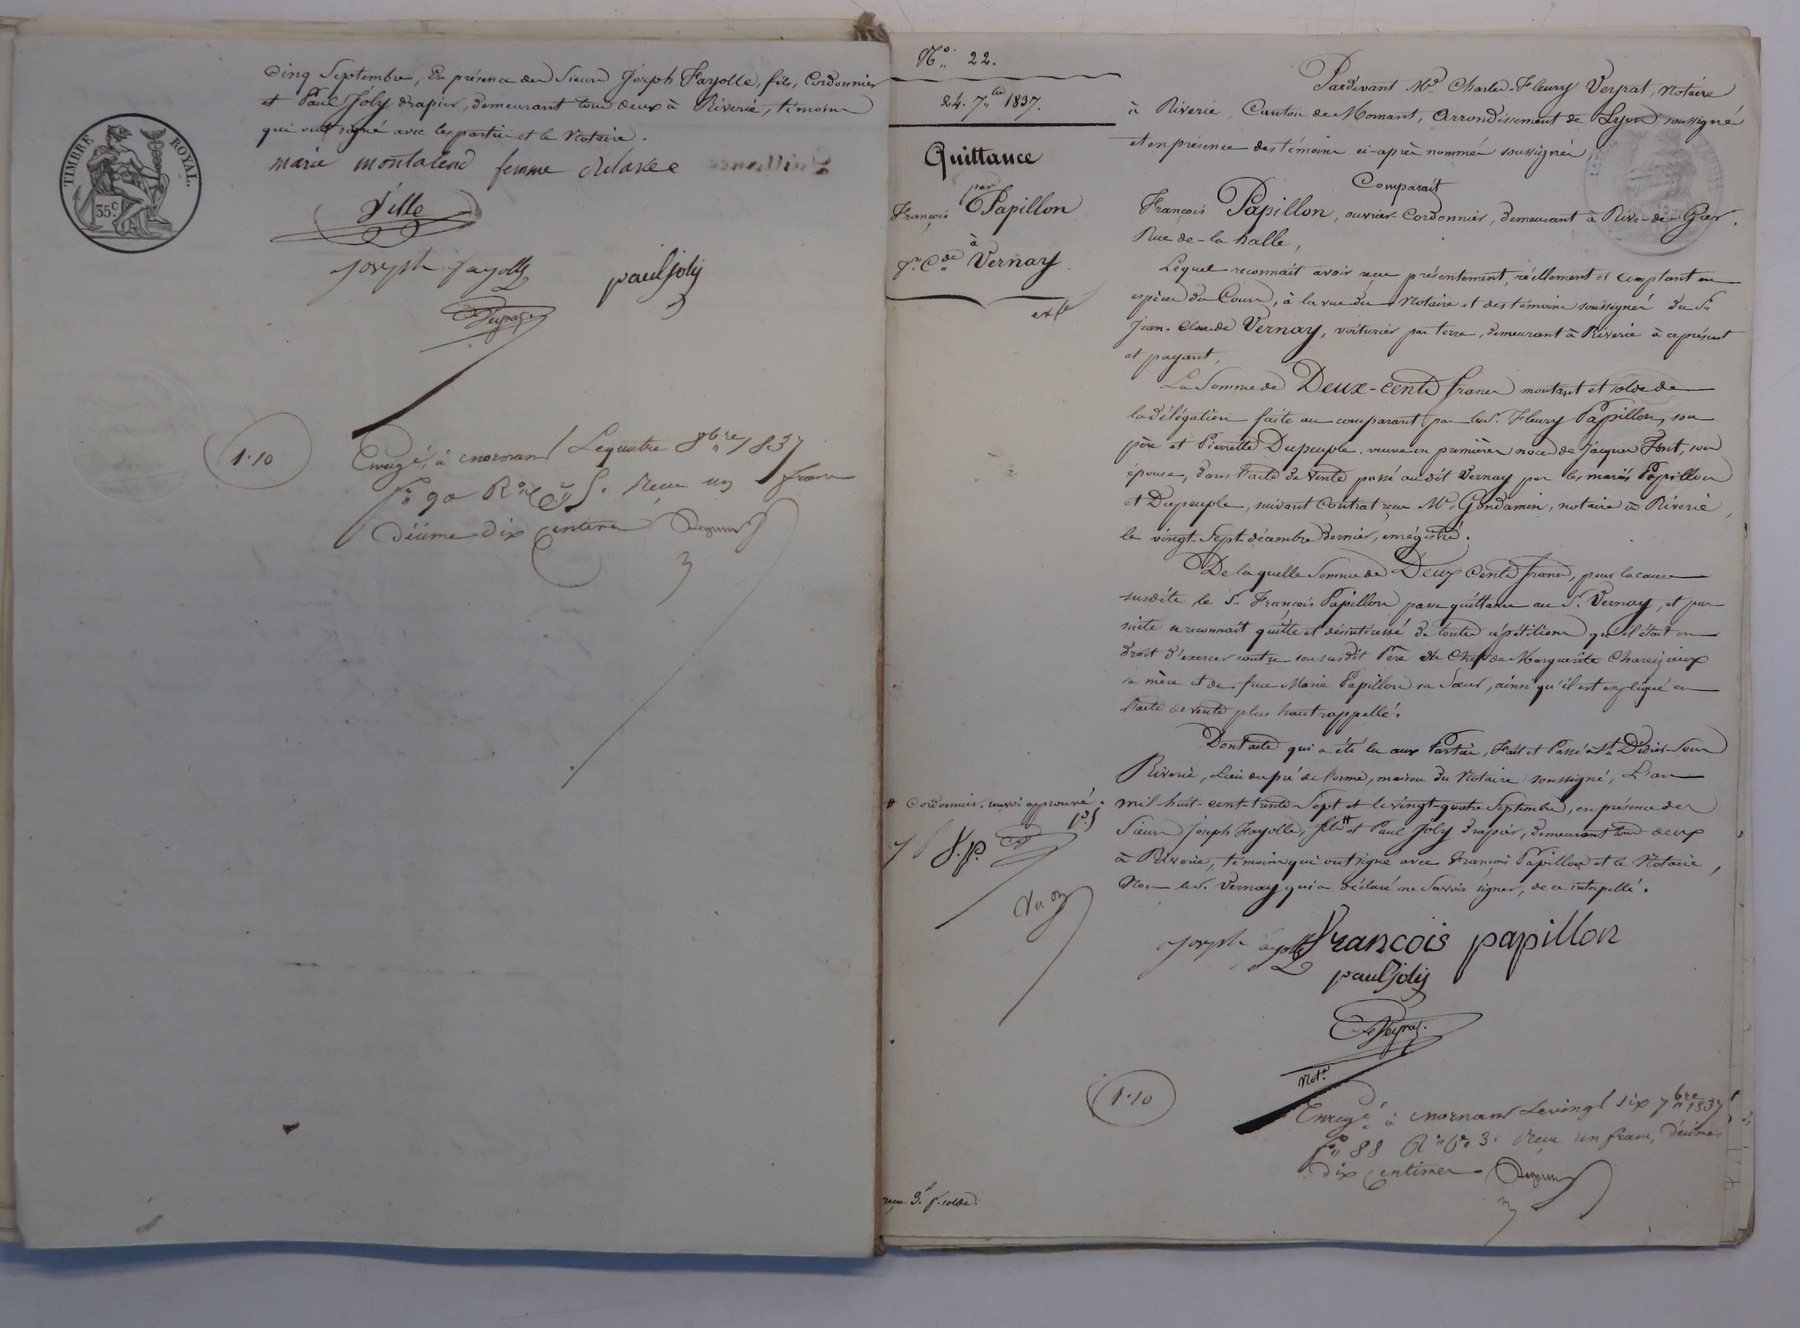 cinq Septembre, En présence des Sieurs Joseph Fayolle, fils, Cordonnier
et Paul Joly drapier, demeurant tous deux à Riverie, témoins
qui ont signé avec les parties et le Notaire.
TIMBRE ROYAL.
35 c.
marie montaland femme
Ville
Joseph fayolle
paul joly
Veyrat
1.10
Enregé à mornant Le quatre 8bre 1837
f° 90 R° Ce 5. Reçu un franc
décime dix centimes
N° 22.
24. 7bre 1837.
Quittance
par
François Papillon
à
Jn Cde Vernay
Pardevant Me Charles-Fleury Veyrat, Notaire
à Riverie, Canton de Mornant, arrondissement de Lyon soussigné
et en présence des témoins ci-après nommés soussignés
Comparait
François Papillon, ouvrier Cordonnier, demeurant à Rive-de-Gier.
Rue de-la halle,
Lequel reconnait avoir reçu présentement, réellement et comptant en
espèces du Cours, à la vue du Notaire et des témoins soussignés du Sr
Jean-Claude Vernay, voiturier par terre, demeurant à Riverie à ce présent
et payant,
La Somme de Deux-cents francs montant et solde de
la délégation faite au comparant par le Sr Fleury Papillon, son
père et Pierrette Dupeuple, veuve en première noce de Jacques Font, son
épouse, dans l'acte de vente passé audit Vernay par les mariés Papillon
et Dupeuple, suivant Contrat reçu Me Gondamin, notaire à Riverie,
le vingt-Sept décembre dernier, enregistré.
De laquelle Somme de Deux Cents francs, pour la cause
susdite, le Sr François Papillon passe quittance au Sr Vernay, et par
suite se reconnait quitte et désintéressé de toutes répétitions qu'il était en
droit d'exercer contre son susdit Père du Chef de Marguerite
sa mère et de feue Marie Papillon sa Soeur, ainsi qu'il est expliqué en
l'acte de vente plus haut rappellé.
Dont acte qui a été lu aux Parties, Fait et Passé à St Didier-Sous
Riverie, Lieu du pré de l'orme, maison du Notaire soussigné, L'an
mil-huit-cent-trente-Sept et le vingt-quatre Septembre, en présence des
Sieurs Joseph Fayolle, fils # et Paul Joly drapier, demeurant tous deux
à Riverie, témoins qui ont signé avec François Papillon et le Notaire,
Non le Sr Vernay qui a déclaré ne Savoir signer, de ce interpellé.
# Cordonnier. renvoi approuvé.
f.p.
Joseph fayolle François papillon
paul joly
Veyrat
Not.e
1.10
Enregé à mornant Le vingt six 7bre 1837
f° 88 R° Ce 3. Reçu un franc, décime
dix centimes
reçu 3 f. solde